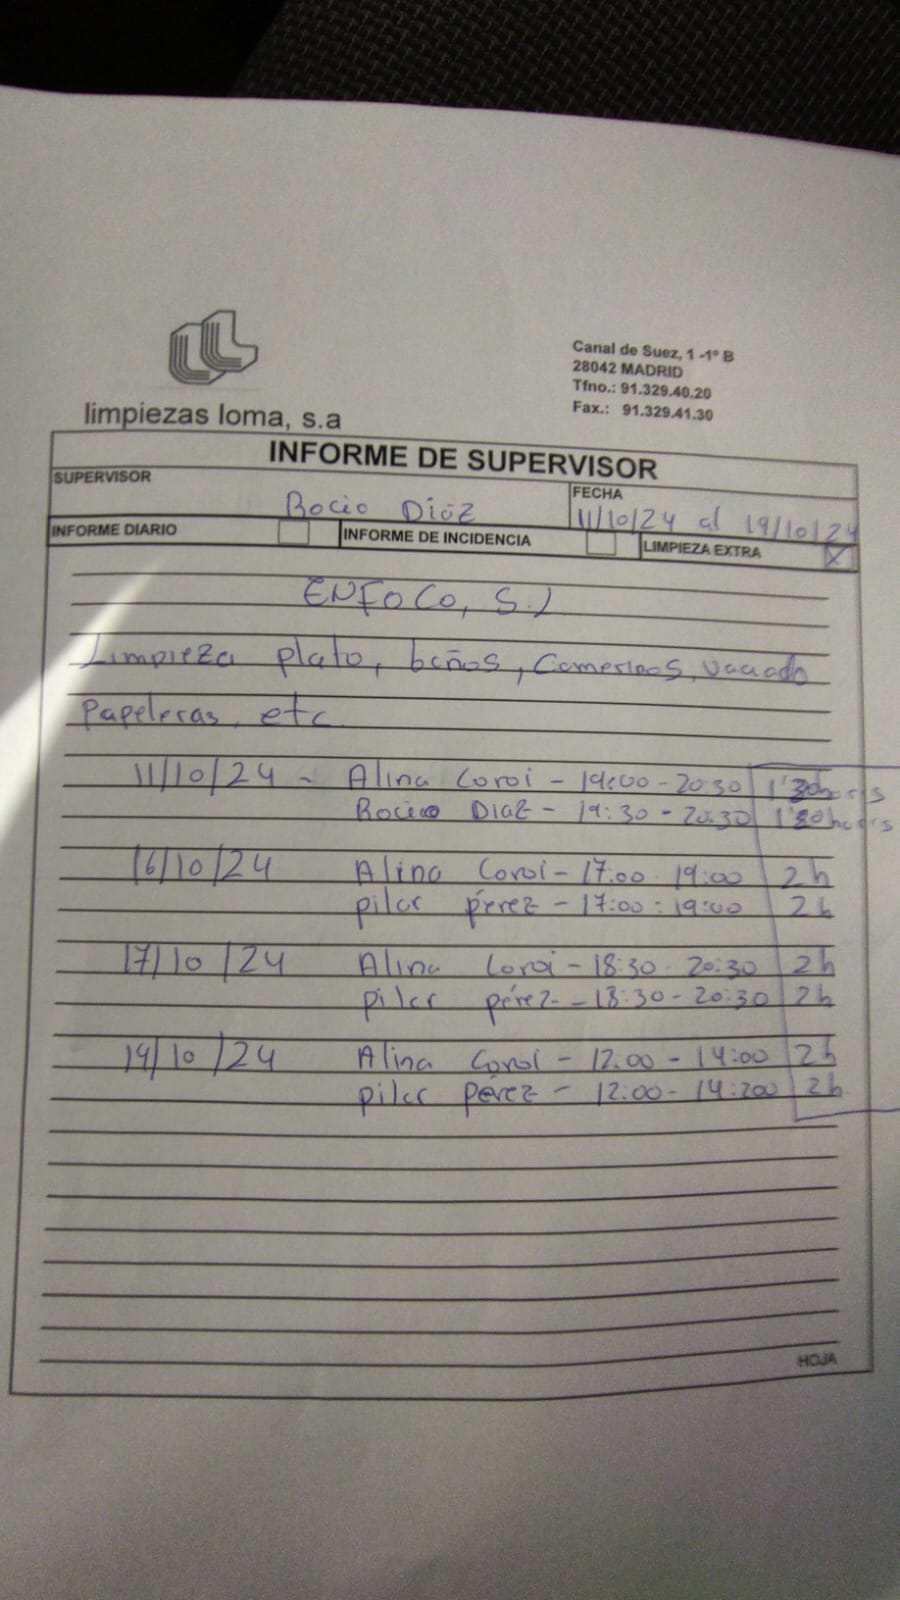 Canal de Suez, 1 -1º B
28042 MADRID
Tfno.: 91.329.40.20
Fax.: 91.329.41.30
limpiezas loma, s.a
INFORME DE SUPERVISOR
SUPERVISOR
Rocio Diaz
FECHA
11/10/24 al 19/10/24
INFORME DIARIO
INFORME DE INCIDENCIA
LIMPIEZA EXTRA X
ENFOCO, S.L
Limpieza plato, baños, Camerinos, vaciado
Papeleras, etc.
11/10/24 - Alina Coroi - 19:00 - 20:30 1'30 horas
Rocio DIAZ - 19:30 - 20:30 horas
16/10/24 Alina Coroi - 17:00 19:00 2h
pilar pérez - 17:00 : 19:00 2h
17/10/24 Alina Coroi - 18:30 - 20:30 2h
pilar pérez - 18:30 - 20:30 2h
19/10/24 Alina Coroi - 12.00 - 14:00 2h
pilar pérez - 12:00 - 14:200 2h
HOJA